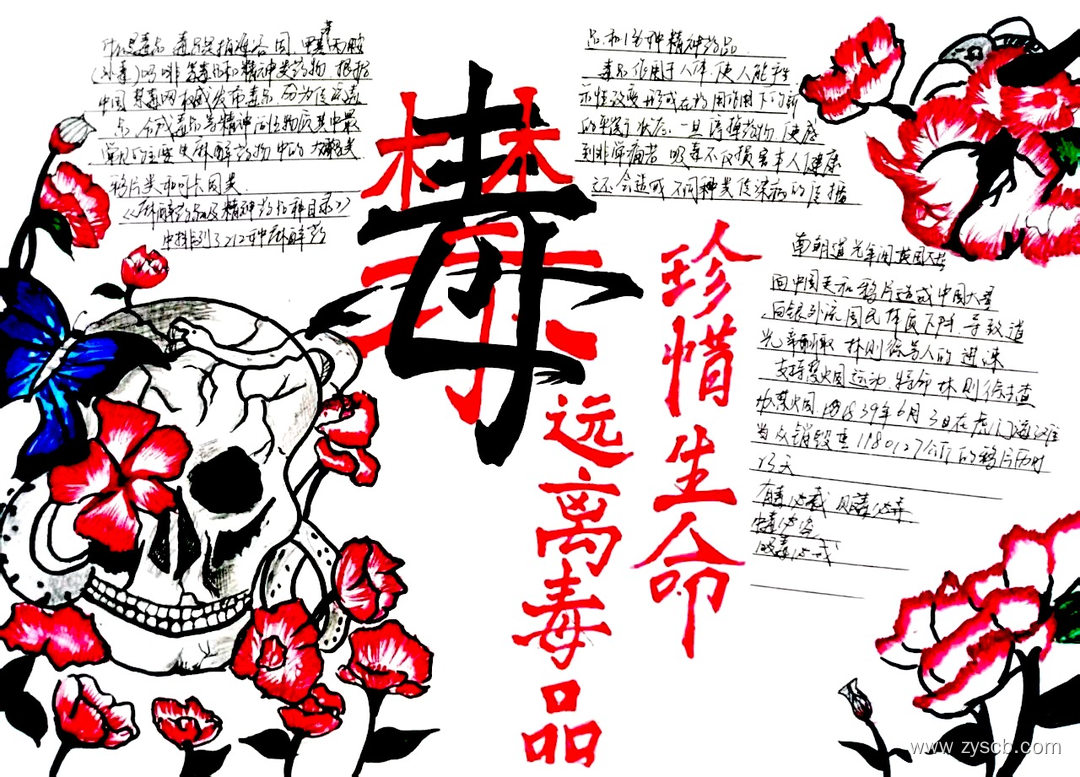 什么是毒品 毒品是指海洛因、甲基苯丙胺
(冰毒)吗啡 等毒品和精神类药物，根据
中国禁毒网权威发布毒品，分为传统毒
品、合成毒品
常见的主要是麻醉药物中的大麻类
鸦片类和可卡因类
《麻醉药品及精神药物种目录》
中排列了121种麻醉药
品和 种精神药品
毒品作用于人体，使人体能产生
示性改变 形成在药用作用下的新
的平衡状态，一旦停掉药物，便感
到非常痛苦 吸毒不仅损害本人健康
还会造成不同种类传染病的传播
禁
毒
珍惜生命
远离毒品
道光年间 英国大
向中国卖和鸦片造成中国大量
白银外流 国民体质下降 导致道
光 林则徐等人的进谏
支持禁烟运动，特命林则徐查
禁烟 1839年6月3日在虎门海滩
当众销毁 1180127公斤的鸦片历时
23天
有毒必戒 贩毒必
种毒必
吸毒必戒
www.zyscb.com